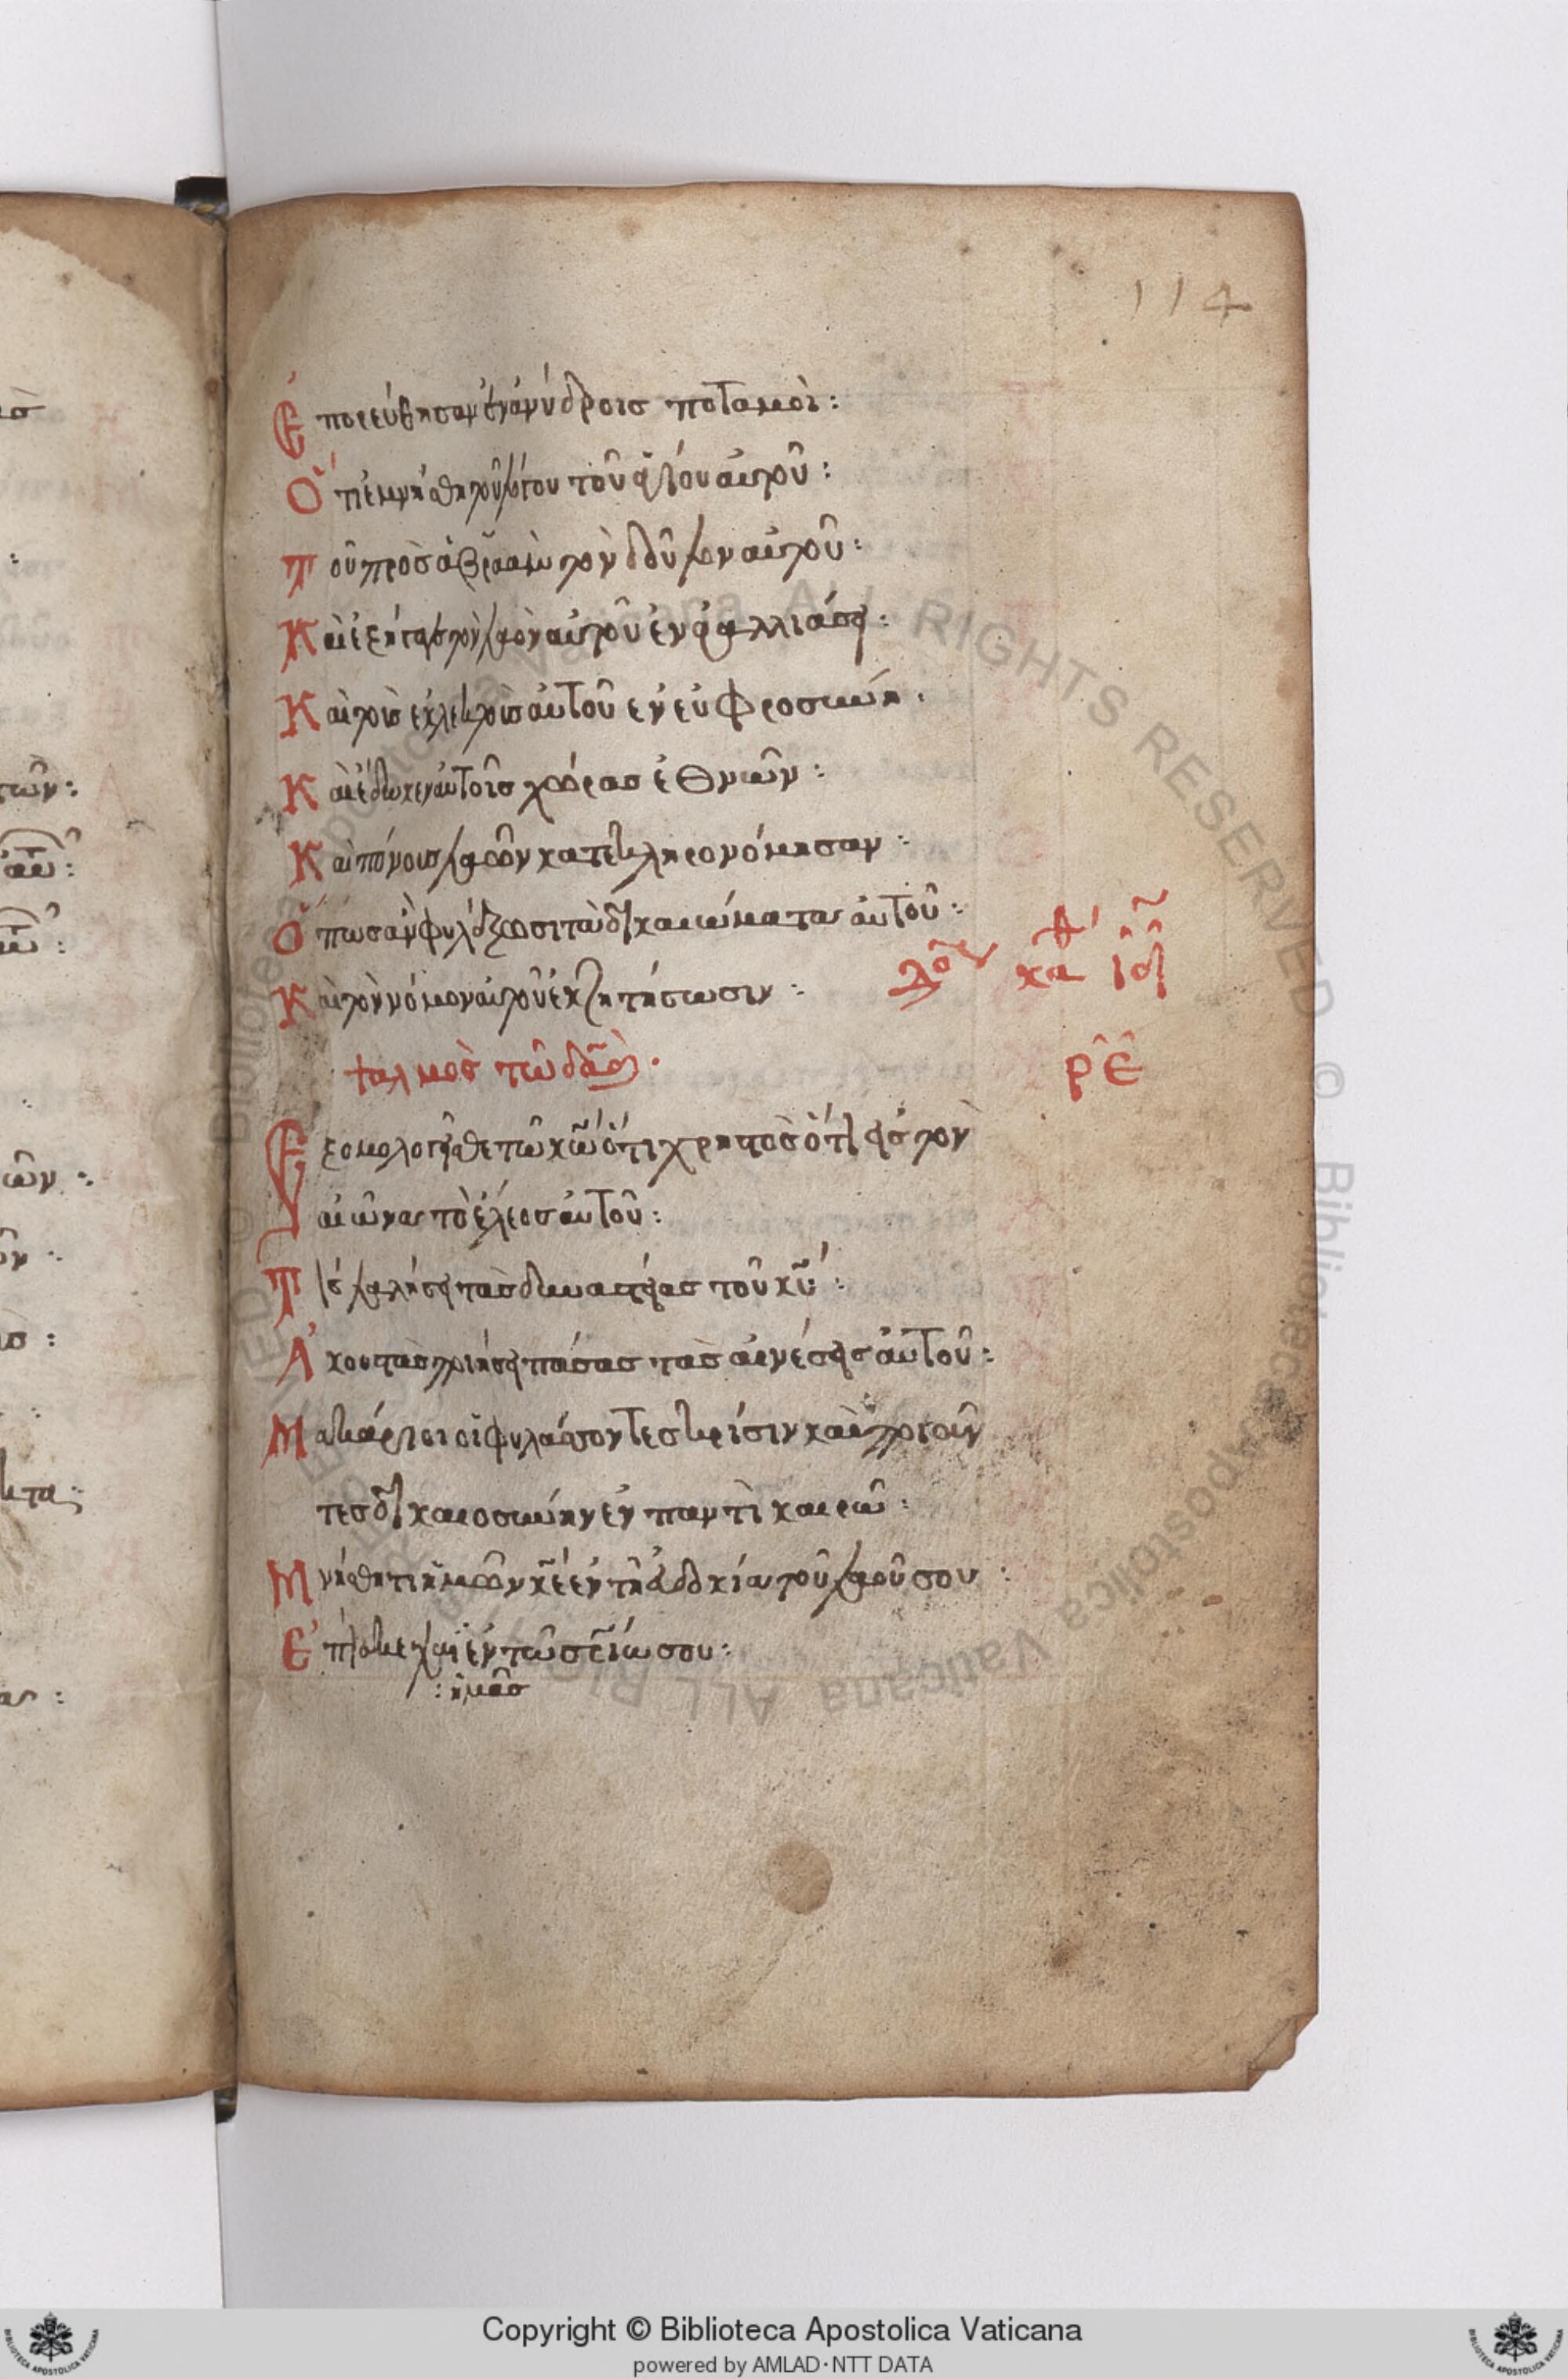 114
Ἐπορεύθησαν ἐν ἀνύδροις ποταμοὶ:
Ὅτι ἐμνήσθη τοῦ λόγου τοῦ ἁγίου αὐτοῦ:
Τοῦ πρὸς ἀβραὰμ τὸν δοῦλον αὐτοῦ:
Καὶ ἐξήγαγε τὸν λαὸν αὐτοῦ ἐν ἀγαλλιάσει:
Καὶ τοὺς ἐκλεκτοὺς αὐτοῦ ἐν εὐφροσύνη:
Καὶ ἔδωκεν αὐτοῖς χώρας ἐθνῶν:
Καὶ πόνους λαῶν κατεκληρονόμησαν:
Ὅπως ἂν φυλάξωσι τὰ δικαιώματα αὐτοῦ:
Καὶ τὸν νόμον αὐτοῦ ἐκζητήσωσιν:
ψαλμὸς τῶ δαδ.
ρε
Ἐξομολογεῖσθε τῶ κω ὅτι χρηστὸς ὅτι εἰς τὸν
αἰῶνα τὸ ἔλεος αὐτοῦ:
Τίς λαλήσει τὰς δυναστείας τοῦ κυ:
Ἀκουστὰς ποιήσει πάσας τὰς αἰνέσεις αὐτοῦ:
Μακάριοι οἱ φυλάσσοντες κρίσιν καὶ ποιοῦν
τες δικαιοσύνην ἐν παντὶ καιρῶ:
Μνήσθητι ἡμῶν κε ἐν τῆ εὐδοκία τοῦ λαοῦ σου:
Ἐπίσκεψαι ἐν τῶ σρίω σου:
:ἡμᾶς
Copyright © Biblioteca Apostolica Vaticana
powered by AMLAD·NTT DATA